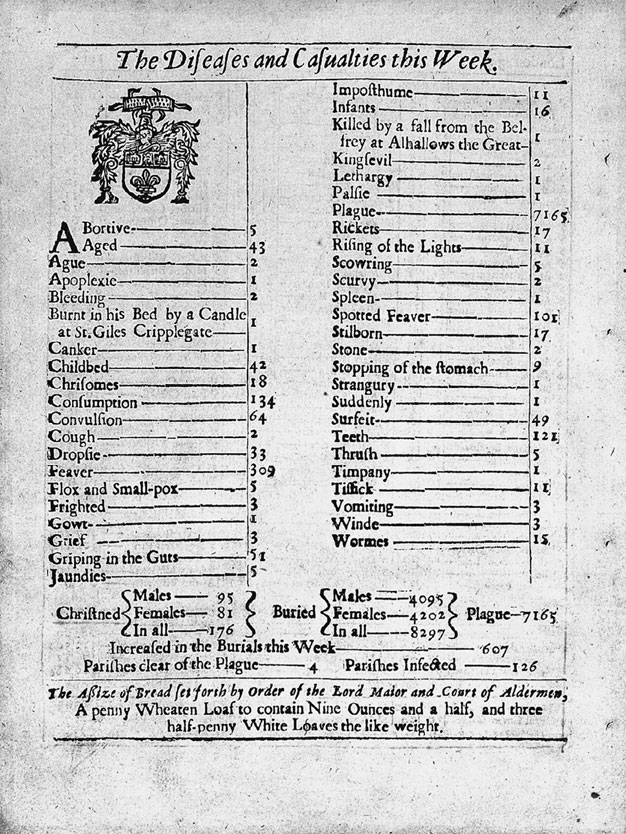 The Diſeaſes and Caſualties this Week.
ABortive 5
Aged 43
Ague 2
Apoplexie 1
Bleeding 2
Burnt in his Bed by a Candle
at St. Giles Cripplegate 1
Canker 1
Childbed 42
Chriſomes 18
Conſumption 134
Convulſion 64
Cough 2
Dropſie 33
Feaver 309
Flox and Small-pox 5
Frighted 3
Gowt 1
Grief 3
Griping in the Guts 51
Jaundies 5
Impoſthume 11
Infants 16
Killed by a fall from the Bel-
frey at Alhallows the Great 1
Kingſevil 2
Lethargy 1
Palſie 1
Plague 7165
Rickets 17
Riſing of the Lights 11
Scowring 5
Scurvy 2
Spleen 1
Spotted Feaver 101
Stilborn 17
Stone 2
Stopping of the ſtomach 9
Strangury 1
Suddenly 1
Surfeit 49
Teeth 121
Thruſh 5
Timpany 1
Tiſſick 11
Vomiting 3
Winde 3
Wormes 15
Chriſtned { Males 95
Females 81
In all 176 }
Buried { Males 4095
Females 4202
In all 8297 } Plague 7165
Increaſed in the Burials this Week 607
Pariſhes clear of the Plague 4 Pariſhes Infected 126
The Aſſize of Bread ſet forth by Order of the Lord Maior and Court of Aldermen,
A penny Wheaten Loaf to contain Nine Ounces and a half, and three
half-penny White Loaves the like weight.